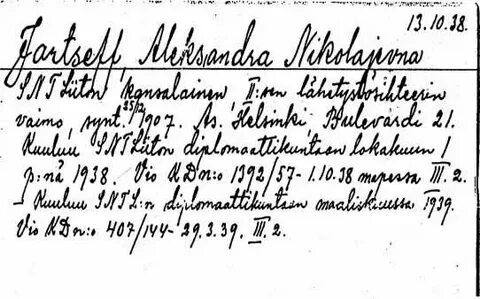 13.10.38.
Jartseff, Aleksandra Nikolajevna
SNTLiiton kansalainen II:sen lähetystösihteerin
vaimo, synt. 25/12 1907. As. Helsinki Bulevardi 21.
Kuuluu SNTLiiton diplomaattikuntaan lokakuun 1
p:nä 1938. Vio KDn:o 1392/57- 1.10.38 mapessa III. 2.
- Kuuluu SNTL:n diplomaattikuntaan maaliskuussa 1939.
Vio KDn:o 407/144- 29.3.39. III. 2.